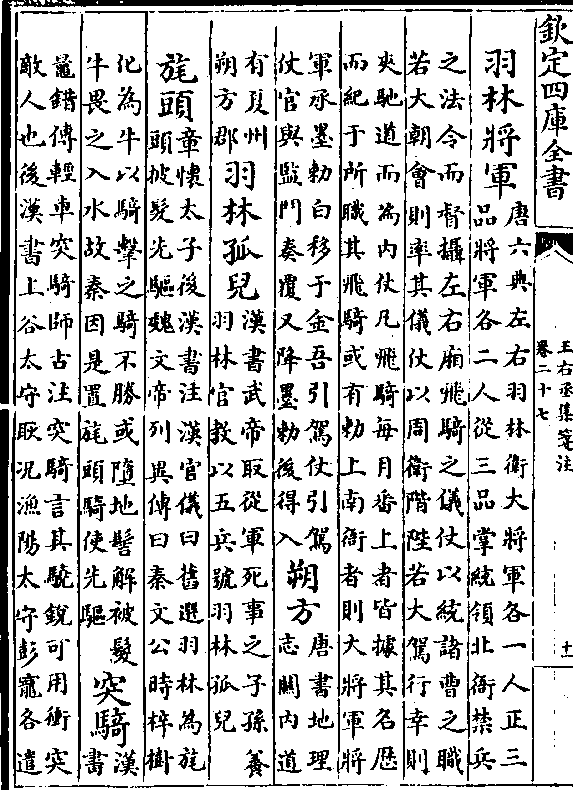 欽定四庫全書
王右丞集箋注
卷二十七
十一
羽林將軍
唐六典左右羽林衛大將軍各一人正三
品將軍各二人從三品掌統領北衙禁兵
之法令而督攝左右廂飛騎之儀仗以統諸曹之職
若大朝會則率其儀仗以周衛階陛若大駕行幸則
夾馳道而為内仗凡飛騎每月番上者皆據其名歷
而紀于所職其飛騎或有勅上南衙者則大將軍將
軍承墨勅白移于金吾引駕仗引駕
仗官與監門奏覆又降墨勅後得入
朔方
唐書地理
志關内道
有夏州
朔方郡
羽林孤兒
漢書武帝取從軍死事之子孫養
羽林官教以五兵號羽林孤兒
旄頭
章懷太子後漢書注漢官儀曰舊選羽林為旄
頭披髮先驅魏文帝列異傳曰秦文公時梓樹
化為牛以騎擊之騎不勝或墮地髻解被髮
牛畏之入水故秦因是置旄頭騎使先驅
突騎
漢
書
鼂錯傳輕車突騎師古注突騎言其驍銳可用衝突
敵人也後漢書上谷太守耿况漁陽太守彭寵各遣